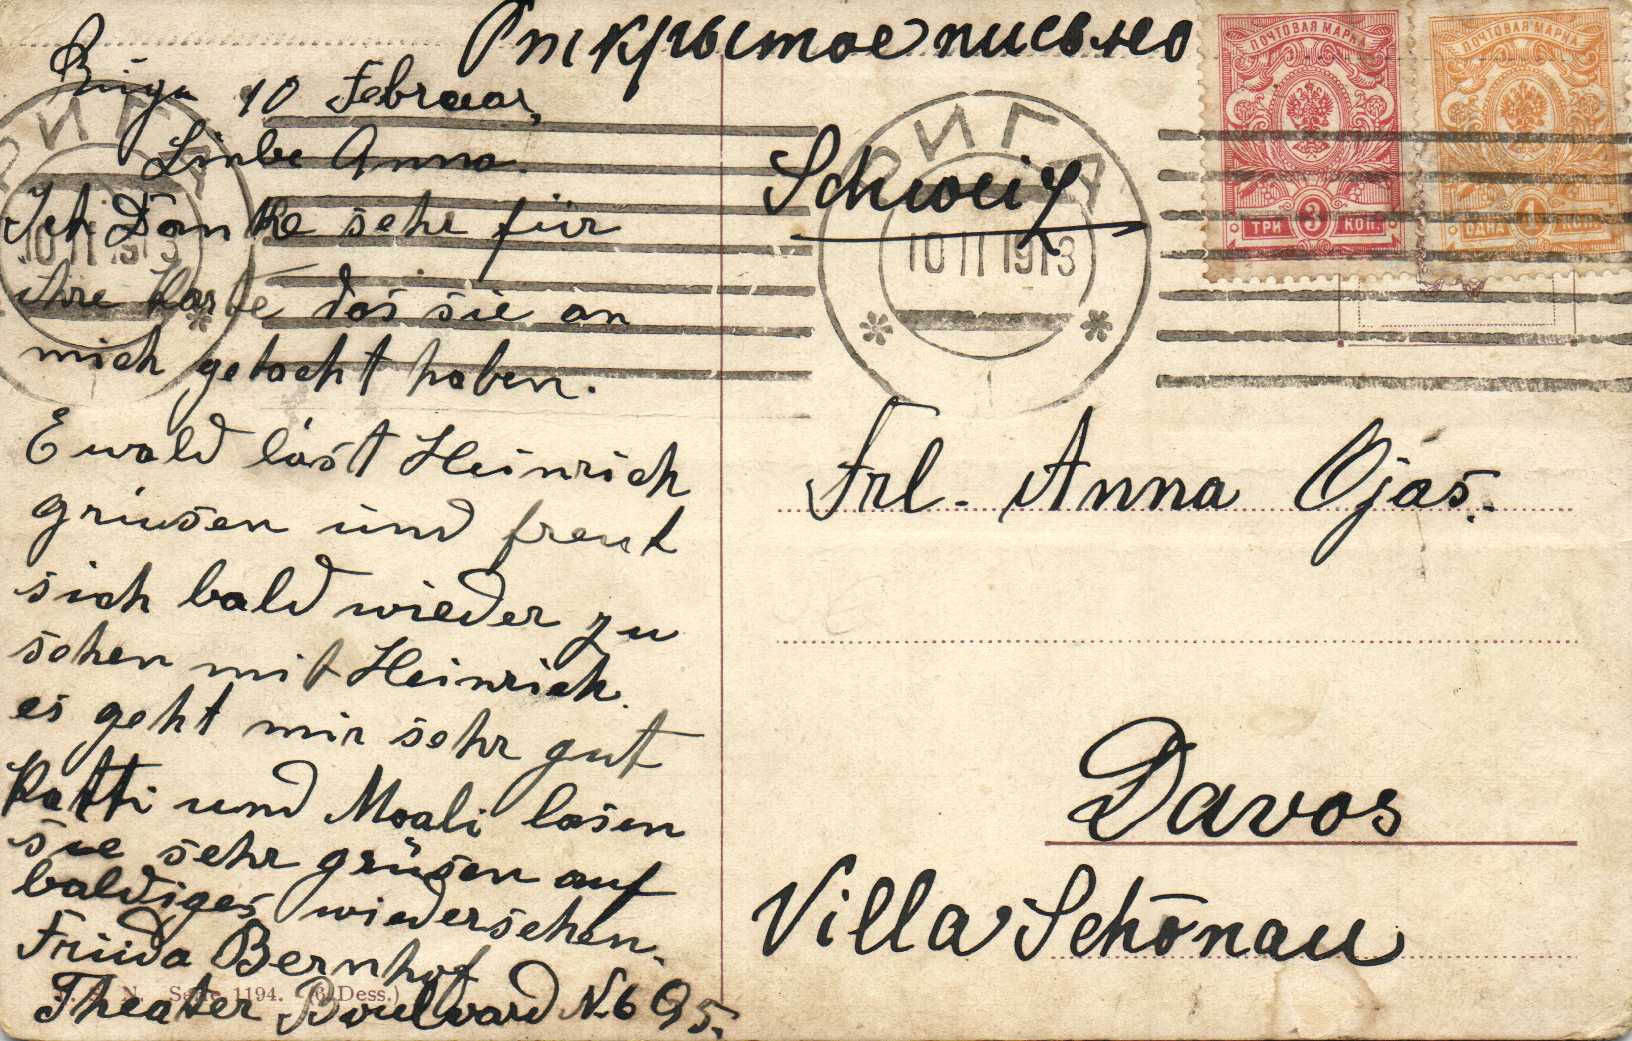 Открытое письмо
Riga 10 Februar,
Liebe Anna.
Ich Danke sehr für
ihre Karte das sie an
mich gedacht haben.
Ewald läst Heinrich
grüsen und freut
sich bald wieder zu
sehen mit Heinrich.
es geht mir sehr gut
Katti und Moali lasen
sie sehr grüsen auf
baldiges wiedersehen.
Friida Bernhof
Theater Boulvard N. 6 Q 5.
N. Serie 1194. (6 Dess.)
РИГА
10 II 1913
РИГА
10 II 1913
ПОЧТОВАЯ МАРКА
ТРИ 3 КОП.
ПОЧТОВАЯ МАРКА
ОДНА 1 КОП.
Schweiz
Frl. Anna Ojas.
Davos
Villa Schönau